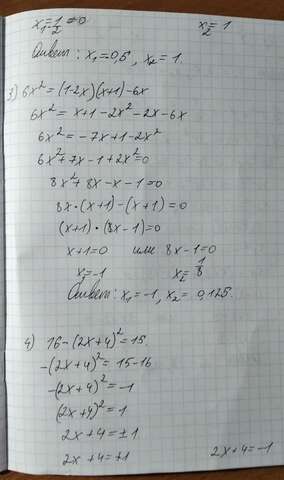 x₁ = 1/2 = 0 x₂ = 1
Ответ: x₁ = 0,5, x₂ = 1.
3) 6x² = (1-2x)(x+1)-6x
6x² = x+1-2x²-2x-6x
6x² = -7x+1-2x²
6x²+7x-1+2x²=0
8x²+8x-x-1=0
8x·(x+1)-(x+1)=0
(x+1)·(8x-1)=0
x+1=0 или 8x-1=0
x₁=-1 x₂=1/8
Ответ: x₁ = -1, x₂ = 0,125.
4) 16-(2x+4)²=15
-(2x+4)² = 15-16
-(2x+4)² = -1
(2x+4)² = 1
2x+4=±1
2x+4=+1 2x+4=-1